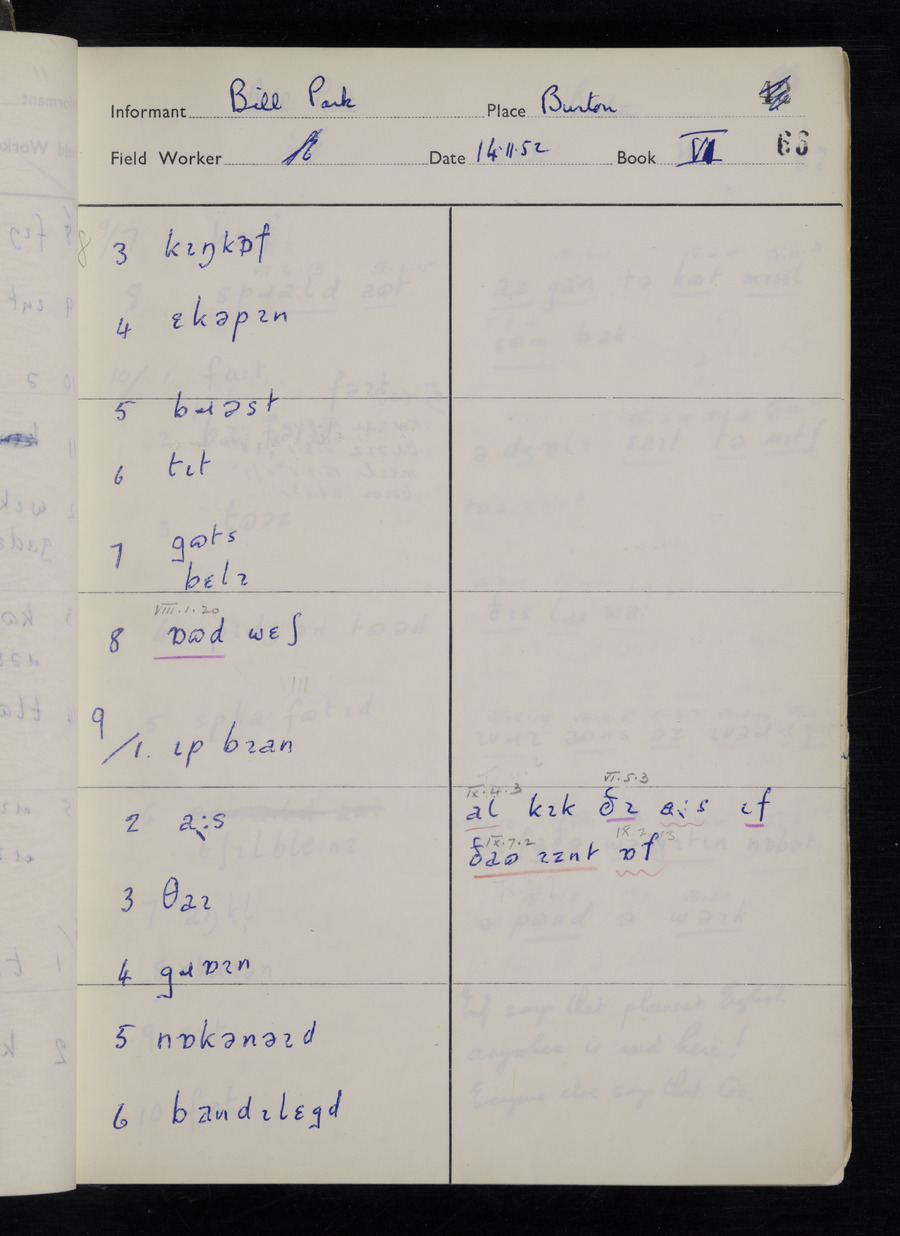 Informant Bill Park Place Burton
Field Worker Date 14.11.52 Book VI 66
8
3 kɪŋkɒf
4 ɛkəpɪn
5 bɹəst
6 tɪt
7 gɷts
bɛlɪ
VIII.1.20
8 ɒɷd wɛʃ
9/1. ɪp bɪan
2 a:s
3 θaɪ
4 gɹɒɪn
5 nɒkənəɪd
6 bandɪlɛgd
IX.4.3 VI.5.3
al kɪk ðɪ a:s ɪf
IX.7.2 IX.2.13
ðaɷ ɪznt ɒf